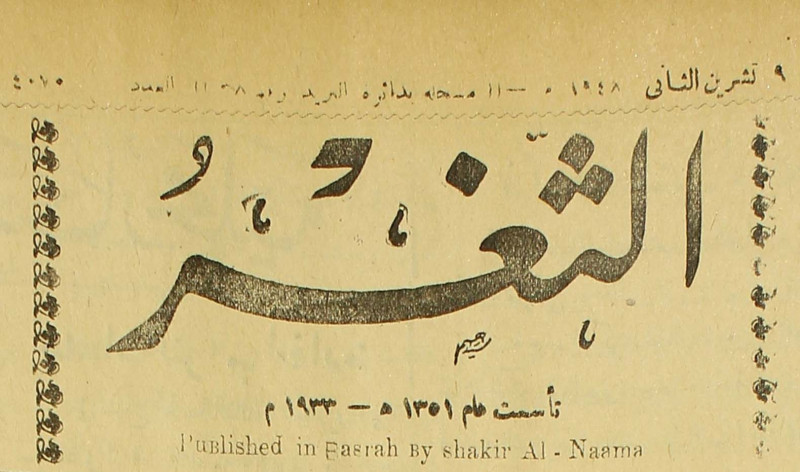 ٩ تشرين الثاني ١٩٤٨ م — ١١ مسجله بدائره البريد العدد ٤٠٧٠
الثغر
تأسست عام ١٣٥١ ه — ١٩٣٣ م
Published in Basrah By shakir Al - Naama